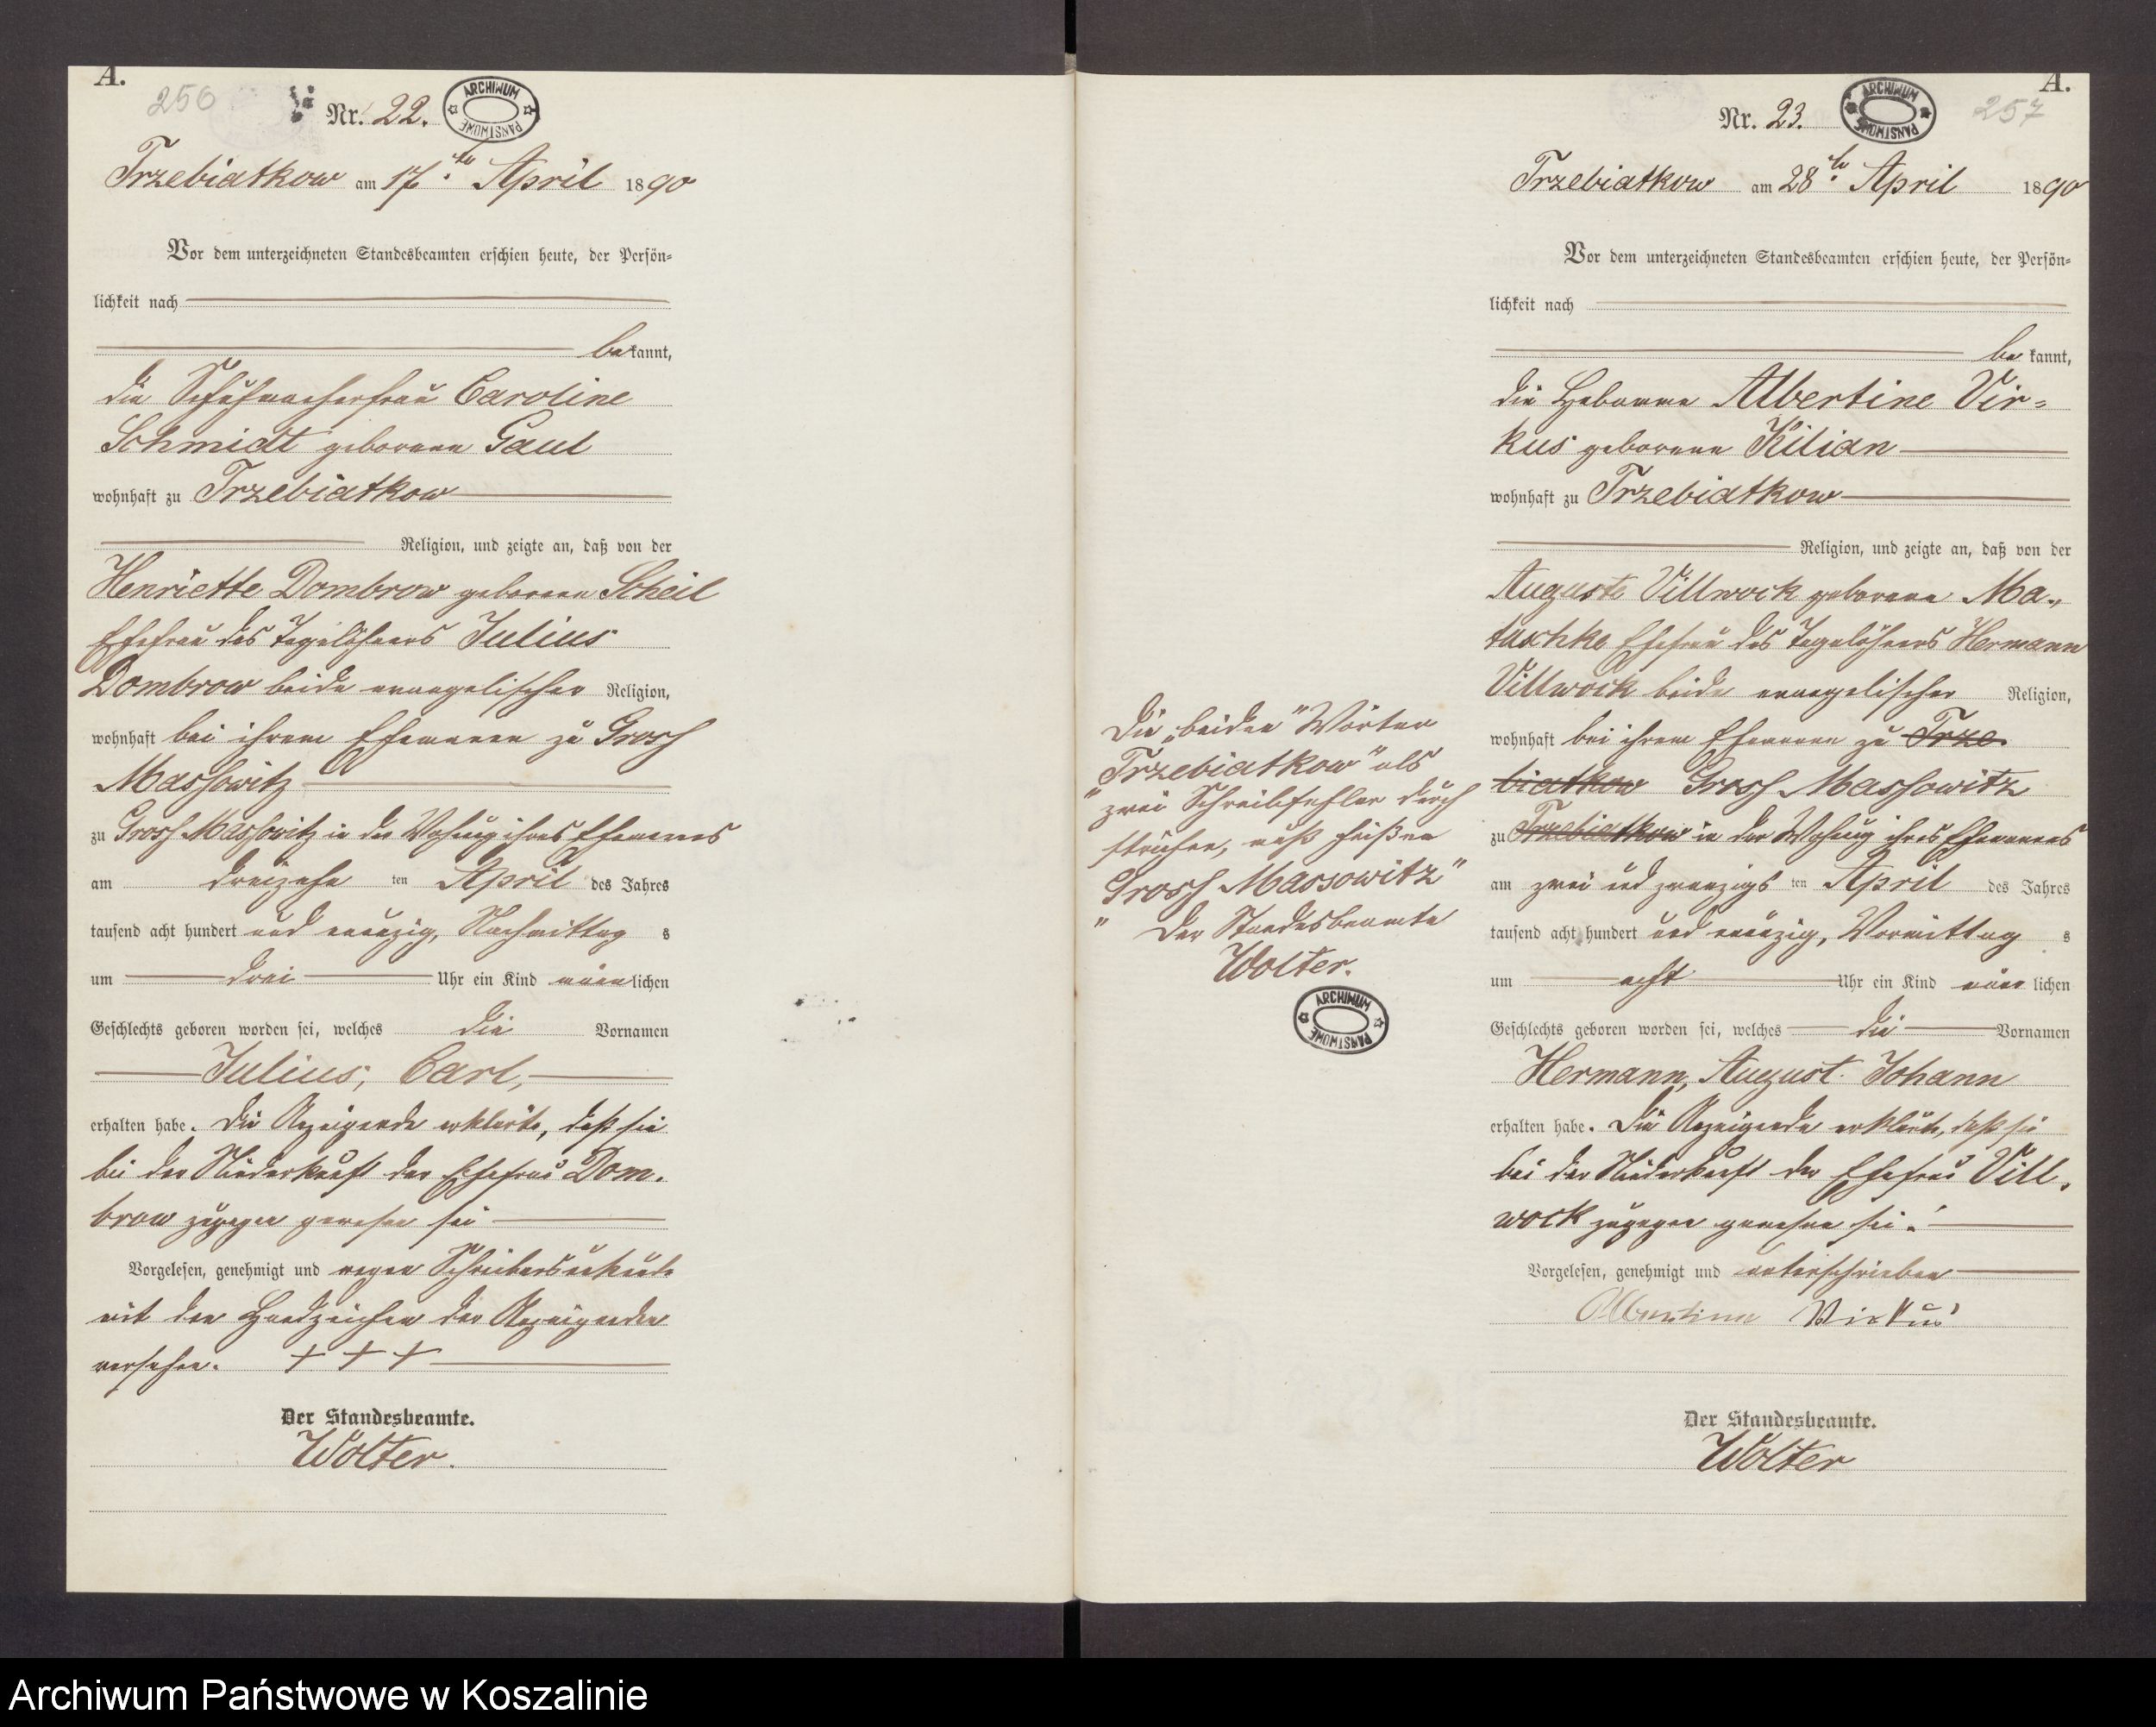 A.
256
Nr. 22.
ARCHIWUM PAŃSTWOWE
Trzebiatkow am 17ten April 1890
Vor dem unterzeichneten Standesbeamten erschien heute, der Persön-
lichkeit nach
bekannt,
die Schuhmacherfrau Caroline
Schmidt geborene Gaul
wohnhaft zu Trzebiatkow
Religion, und zeigte an, daß von der
Henriette Dombrow geborene Scheil
Ehefrau des Tagelöhners Julius
Dombrow beide evangelischer Religion,
wohnhaft bei ihrem Ehemanne zu Gross
Massowitz
zu Gross Massowitz in der Wohnung ihres Ehemannes
am dreizehn ten April des Jahres
tausend acht hundert und neunzig, Nachmittag s
um drei Uhr ein Kind männlichen
Geschlechts geboren worden sei, welches die Vornamen
Julius, Carl,
erhalten habe. Die Anzeigende erklärte, daß sie
bei der Niederkunft der Ehefrau Dom-
brow zugegen gewesen sei
Vorgelesen, genehmigt und wegen Schreibensunkunde
mit den Handzeichen der Anzeigenden
versehen. + + +
Der Standesbeamte.
Wolter.
Die „beiden" Wörter
„Trzebiatkow" als
zwei Schreibfehler durch
strichen, muß heißen
„Gross Massowitz"
Der Standesbeamte
Wolter.
ARCHIWUM PAŃSTWOWE
A.
257
Nr. 23.
ARCHIWUM PAŃSTWOWE
Trzebiatkow am 28te April 1890
Vor dem unterzeichneten Standesbeamten erschien heute, der Persön-
lichkeit nach
be kannt,
die Hebamme Albertine Vir-
kus geborene Kilian
wohnhaft zu Trzebiatkow
Religion, und zeigte an, daß von der
Auguste Villwock geborene Ma-
tuschke Ehefrau des Tagelöhners Hermann
Villwock beide evangelischer Religion,
wohnhaft bei ihrem Ehemanne zu Trze-
biatkow Gross Massowitz
zu Trzebiatkow in der Wohnung ihres Ehemannes
am zwei und zwanzigs ten April des Jahres
tausend acht hundert und neunzig, Vormittag s
um acht Uhr ein Kind männ lichen
Geschlechts geboren worden sei, welches die Vornamen
Hermann, August Johann
erhalten habe. Die Anzeigende erklärte, daß sie
bei der Niederkunft der Ehefrau Vill-
wock zugegen gewesen sei.
Vorgelesen, genehmigt und unterschrieben
Albertine Virkus
Der Standesbeamte.
Wolter
Archiwum Państwowe w Koszalinie